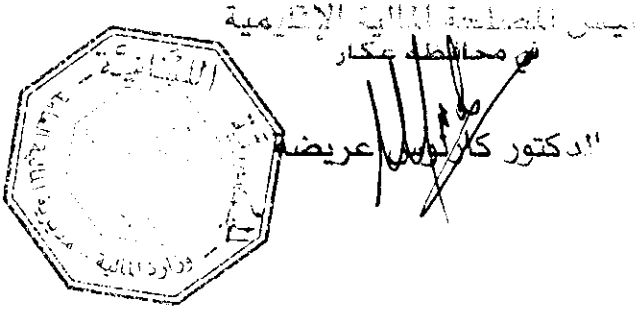 رئيس المصلحة المالية الإقليمية
في محافظة عكار
الدكتور كارلوس عريضة
اللبنانية
وزارة المالية